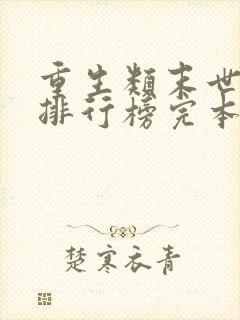 重生類末世
排行榜完本
楚寒衣青